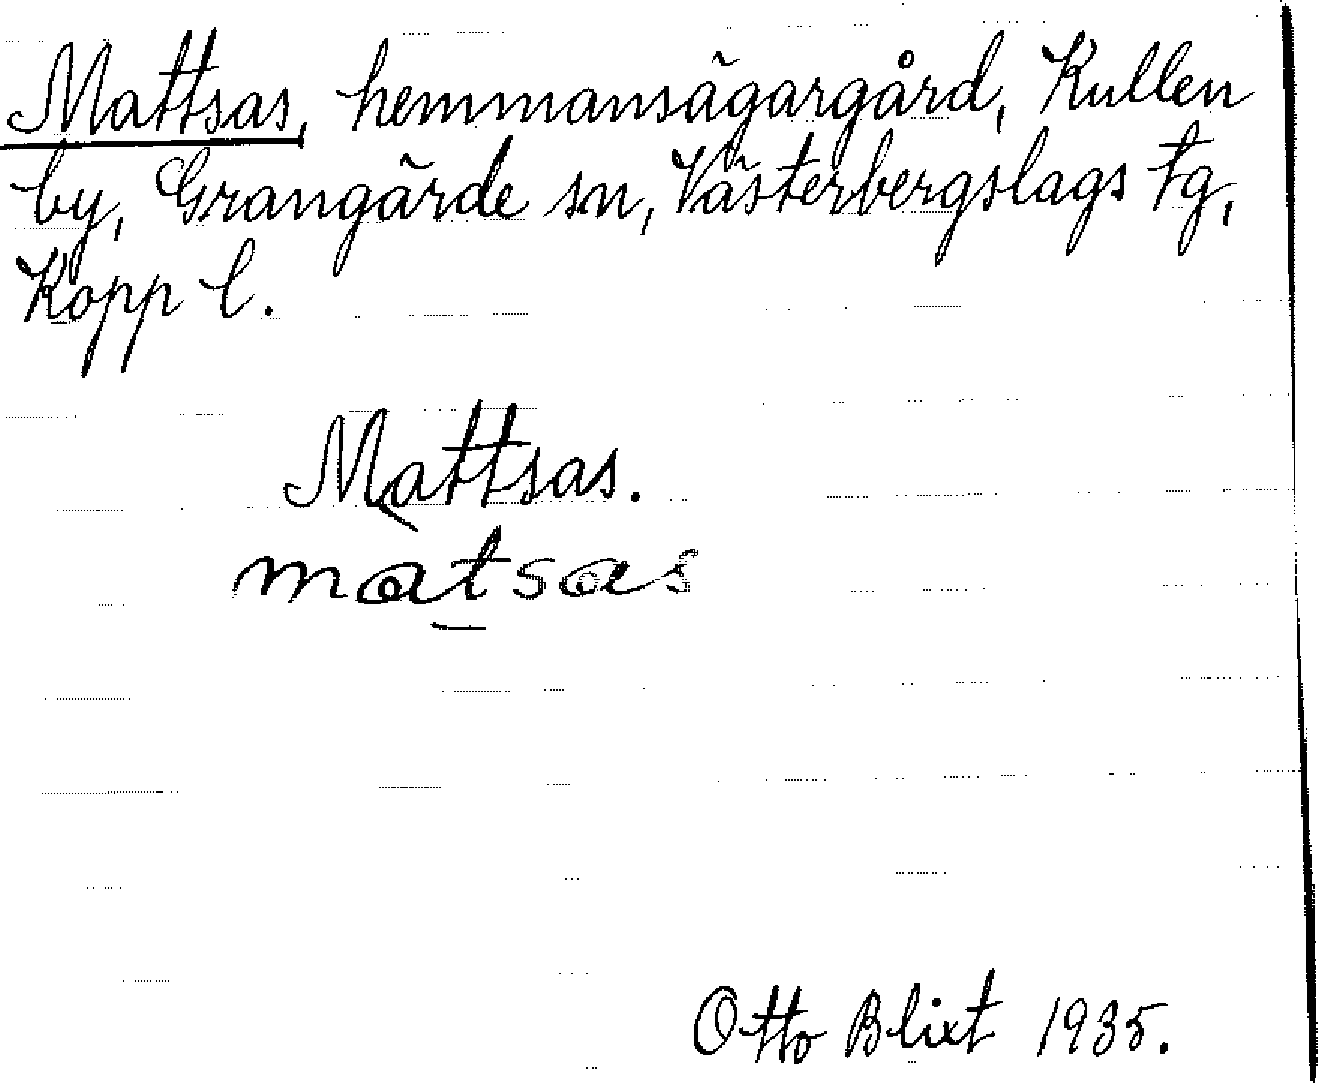 Mattsas, hemmansägargård, Kullen
by, Grangärde sn, Västerbergslags tg,
Kopp l.
Mattsas.
matsas
Otto Blixt 1935.